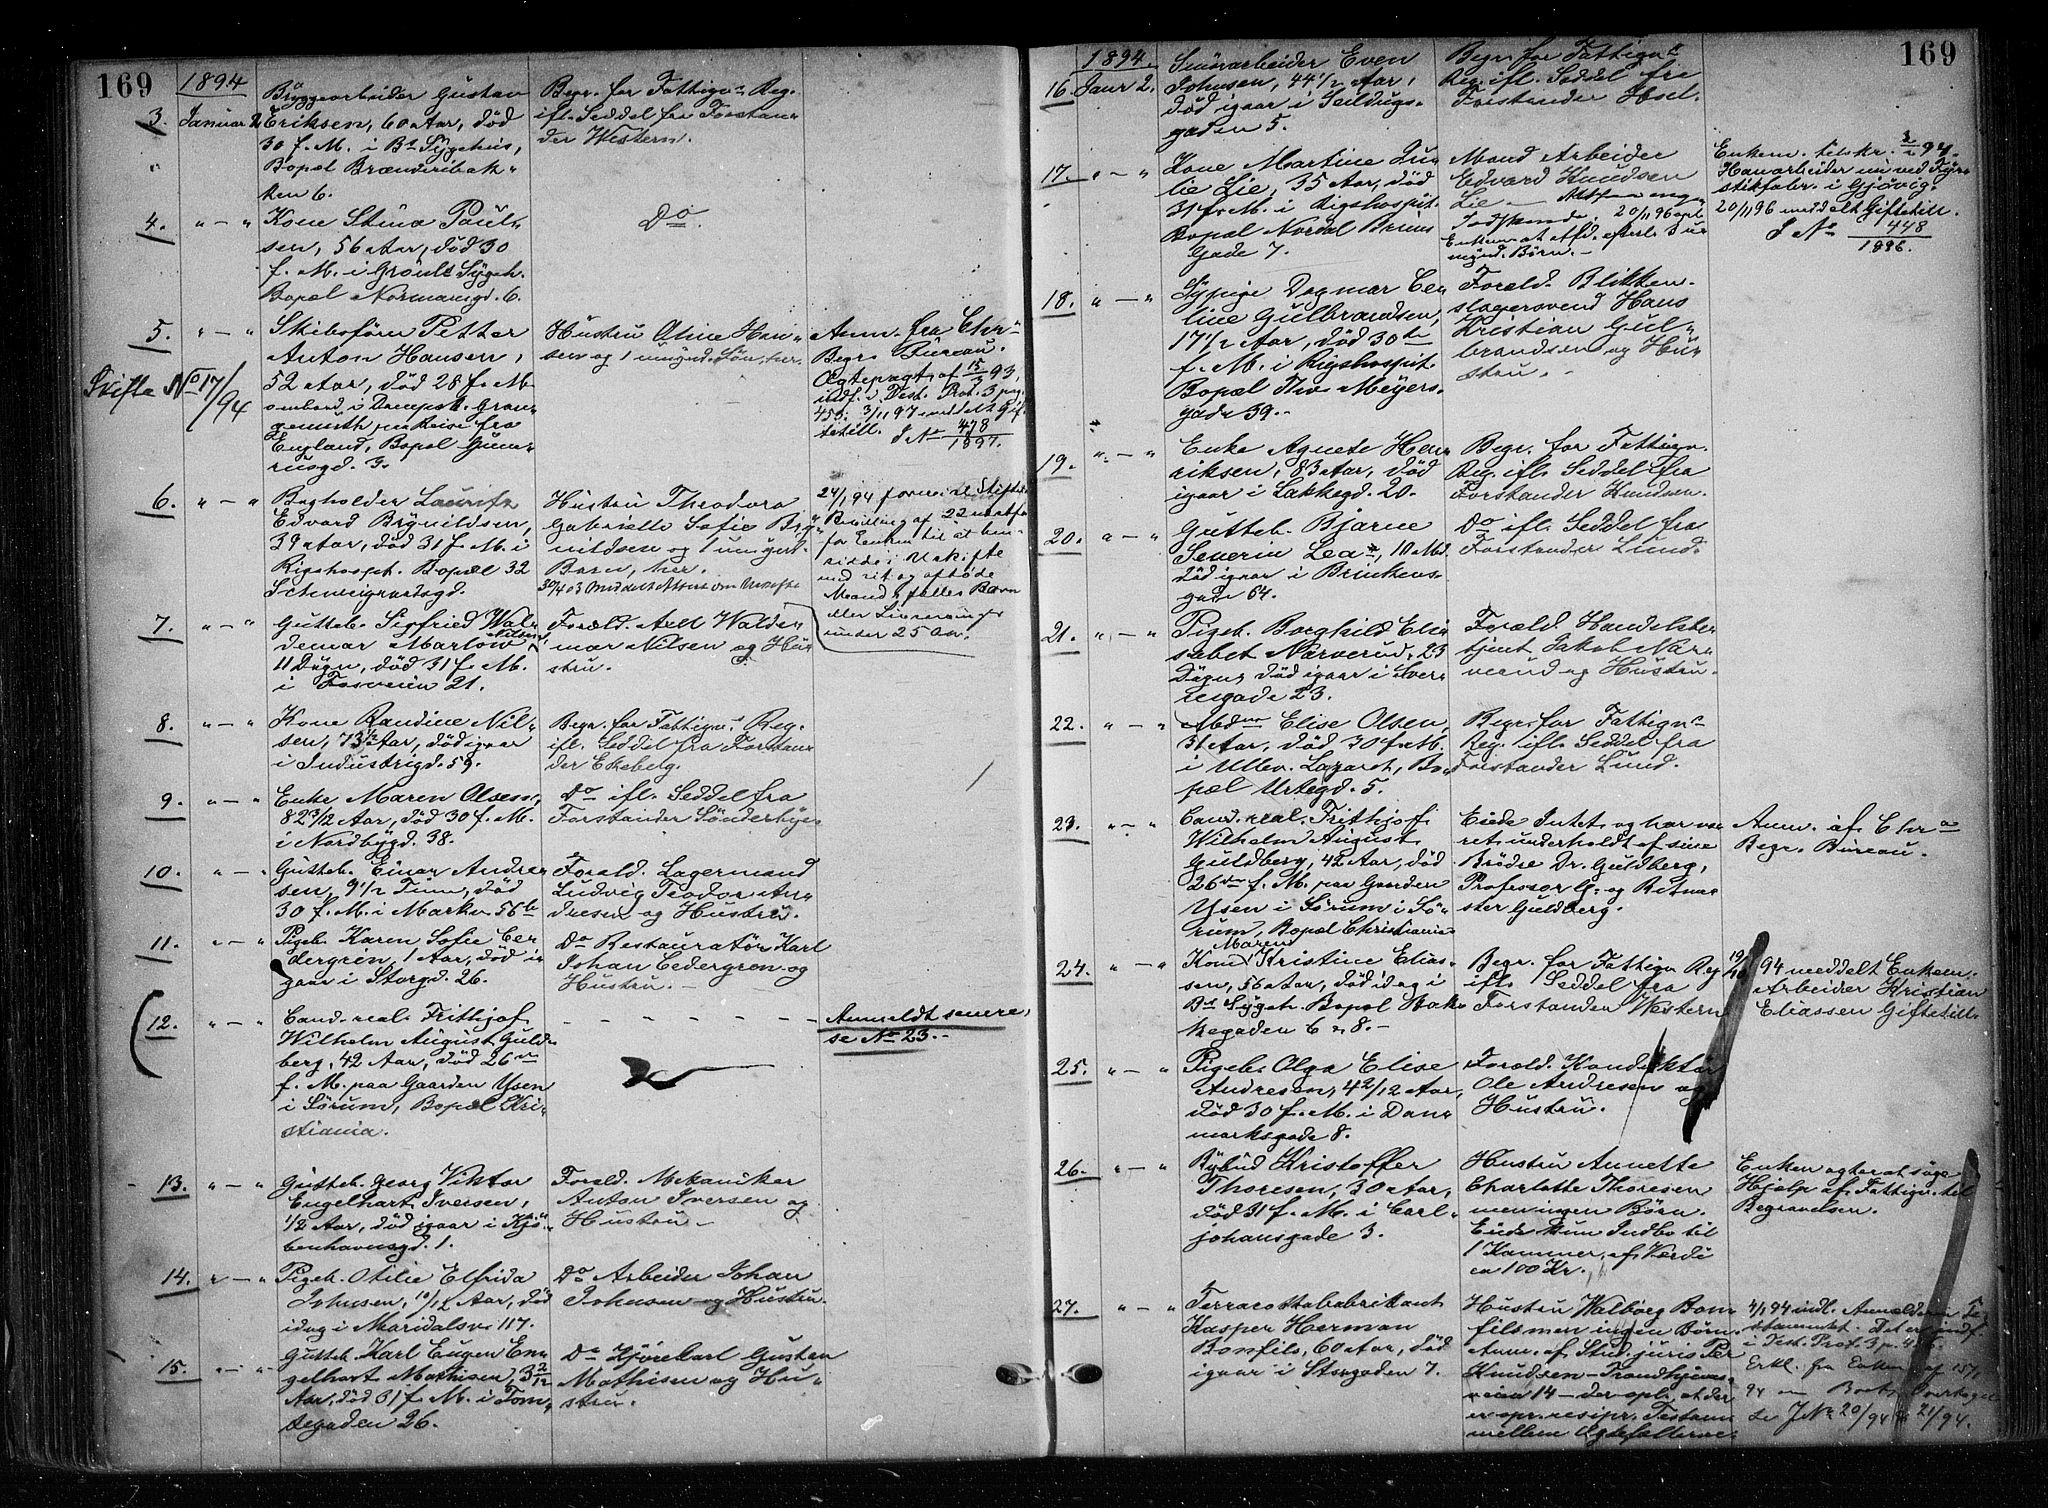 169
1894
3. Januar 2 Bryggearbeider Gustav
Eriksen, 60 Aar, död
30 f. M. i Bs Sygehus,
Bopæl Brænderibak-
ken 6.
Begr. for Fattigv. Reg.
ifl. Seddel fra Forstan-
der Western.
4. " — " Kone Stina Paul-
sen, 56 Aar, död 30
f. M. i Grönl. Sygeh.
Bopæl Normansgd. 6.
Do
5. " — " Skibsförer Petter
Anton Hansen,
52 Aar, död 28 f. M.
ombord i Dampsk.
paa Reise fra
England, Bopæl
3.
Skifte No 17/94
Hustru Oline Han-
sen og 1 umynd. Sön, her
Anm. fra Chr-
Begr. Bureau.
Ægtepagt af 15/3 93,
indf. i Test. Prot. 3 pag.
453. 3/11 97 meddelt Gif-
tetill. J No 478/1897.
6. " — " Bogholder Lauritz
Edvard Brynildsen,
39 Aar, död 31 f. M. i
Rigshospit. Bopæl 32
Schweigaardsgd.
Hustru Theodora
Gabrielle Sofie Bryn-
nildsen og 1 umynd.
Barn, her.
24/1 94
Bevilling af 22
for Enken til at hen-
sidde i Uskifte
med sit og afdöde
Mands fælles Barn
eller Livsarvinger
under 25 Aar.
7. " — " Gutteb. Sigfried Wal-
demar Marlow Nilsen
11 Dögn, död 31 f. M.
i Fosveien 21.
Foræld. Axel Walde-
mar Nilsen og Hu-
stru.
8. " — " Kone Randine Nil-
sen, 73 1/2 Aar, död igaar
i Industrigd. 59.
Begr. for Fattigv. Reg.
ifl. Seddel fra Forstan-
der Ekeberg.
9. " — " Enke Maren Olsen,
82 3/12 Aar, död 30 f. M.
i Nordbygd. 38.
Do ifl. Seddel fra
Forstander Sönderbye
10. " — " Gutteb. Einar Andre-
sen, 9 1/2 Time, död
30 f. M. i Markv. 56 b
Foræld. Lagermand
Ludvig Teodor An-
dresen og Hustru.
11. " — " Pigeb. Karen Sofie Ce-
dergren, 1 Aar, död i-
gaar i Storgd. 26.
Do Restauratör Karl
Johan Cedergren og
Hustru. —
12. " — " Cand. real. Frithjof
Wilhelm August Guld-
berg, 42 Aar, död 26de
f. M. paa Gaarden Ysen
i Sörum, Bopæl Kri-
stiania.
Anmeldt senere,
se No 23. —
13. " — " Gutteb. Georg Viktor
Engelhart Iversen,
1/2 Aar, död igaar i Kjö-
benhavnsgd. 1.
Foræld. Mekaniker
Anton Iversen og
Hustru —
14. " — " Pigeb. Otilie Elfrida
Johnsen, 10/12 Aar, död
idag i Maridalsv. 117.
Do Arbeider Johan
Johnsen og Hustru.
15. " — " Gutteb. Karl Eugen En-
gelhart Mathisen, 3 2/12
Aar, död 31 f. M. i Tom-
tegaden 26.
Do Kjörekarl Gustav
Mathisen og Hu-
stru.
169
1894.
16 Janr 2. Stenarbeider Even
Johnsen, 44 1/2 Aar,
död igaar i Seildugs-
gaden 5.
Begr. for Fattigv.
Reg. ifl. Seddel fra
Forstander Hoel.
17. " — " Kone Martine Ju-
lie Lie, 35 Aar, död
31 f. M. i Rigshospit.
Bopæl Nordal Bruns
Gade 7.
Mand Arbeider
Edvard Knudsen
Lie —
20/11 96 opl.
Enkem. at Afd. efterl. 3 u-
mynd. Börn. —
Enkem. tilskr. 3/2 94.
Han arbeider nu ved Fyr-
stikfabr. i Gjövig.
20/11 96 meddelt Giftetill.
J No 448/1896.
18. " — " Sypige Dagmar Ce-
line Gulbrandsen,
17 1/2 Aar, död 30te
f. M. i Rigshospit.
Bopæl Thv. Meyers-
gade 39. —
Foræld. Blikken-
slagersvend Hans
Kristian Gul-
brandsen og Hu-
stru. —
19. " — " Enke Agnete Hen-
riksen, 83 Aar, död
igaar i Lakkegd. 20.
Begr. for Fattigv.
Reg. ifl. Seddel fra
Forstander Knudsen.
20. " — " Gutteb. Bjarne
Severin Lea, 10 Md.
död igaar i Brinkens-
gade 64.
Do ifl. Seddel fra
Forstander Lund.
21. " — " Pigeb. Borghild Eli-
sabet Narverud, 23
Dögn, död igaar i Sver-
resgade 23.
Foræld. Handelsbe-
tjent Jakob Nar-
verud og Hustru.
22. " — " Elise Olsen,
31 Aar, död 30 f. M.
i Ullev. Lazaret, Bo-
pæl Urtegd. 5.
Begr. for Fattigv.
Reg. ifl. Seddel fra
Forstander Lund.
23. " — " Cand. real. Frithjof
Wilhelm August
Guldberg, 42 Aar, död
26de f. M. paa Gaarden
Ysen i Sörum i Sö-
rum, Bopæl Christiania
Eiede Intet og har væ-
ret underholdt af sine
Brödre Dr. Guldberg,
Professor G. og Ritme-
ster Guldberg.
Anm. af Chra
Begr. Bureau.
24. " — " Kone Maren Kristine Elias-
sen, 56 Aar, död idag i
Bs Sygeh. Bopæl Bak-
kegaden 6 & 8. —
Begr. for Fattigv. Reg.
ifl. Seddel fra
Forstander Western
19/10 94 meddelt Enkem.
Arbeider Kristian
Eliassen Giftetill.
25. " — " Pigeb. Olga Elise
Andresen, 4 2/12 Aar,
död 30 f. M. i Dan-
marksgade 8.
Foræld. Konduktör
Ole Andresen og
Hustru.
26. " — " Bybud Kristoffer
Thoresen, 30 Aar,
död 31 f. M. i Carl-
johansgade 3.
Hustru Annette
Charlotte Thoresen
men ingen Börn.
Eiede kun Indbo til
1 Kammer, af Værdi
ca 100 Kr.
Enken agter at söge
Hjælp af Fattigv. til
Begravelsen.
27. " — " Terracottafabrikant
Kasper Herman
Bonfils, 60 Aar, död
igaar i Storgaden 7.
Hustru Walborg Bon-
fils men ingen Börn.
Anm. af Stud. juris Per
Knudsen — Trondhjems-
veien 14 — der opl. at der
er opr. resipr. Testam.
mellem Ægtefællerne.
4/1 94 indl. Anmelderen Te-
stamentet. Det er indf.
i Test. Prot. 3 p.
Erkl. fra Enken af
94 om Boets Overtagel
se J No 20/94 & 21/94.